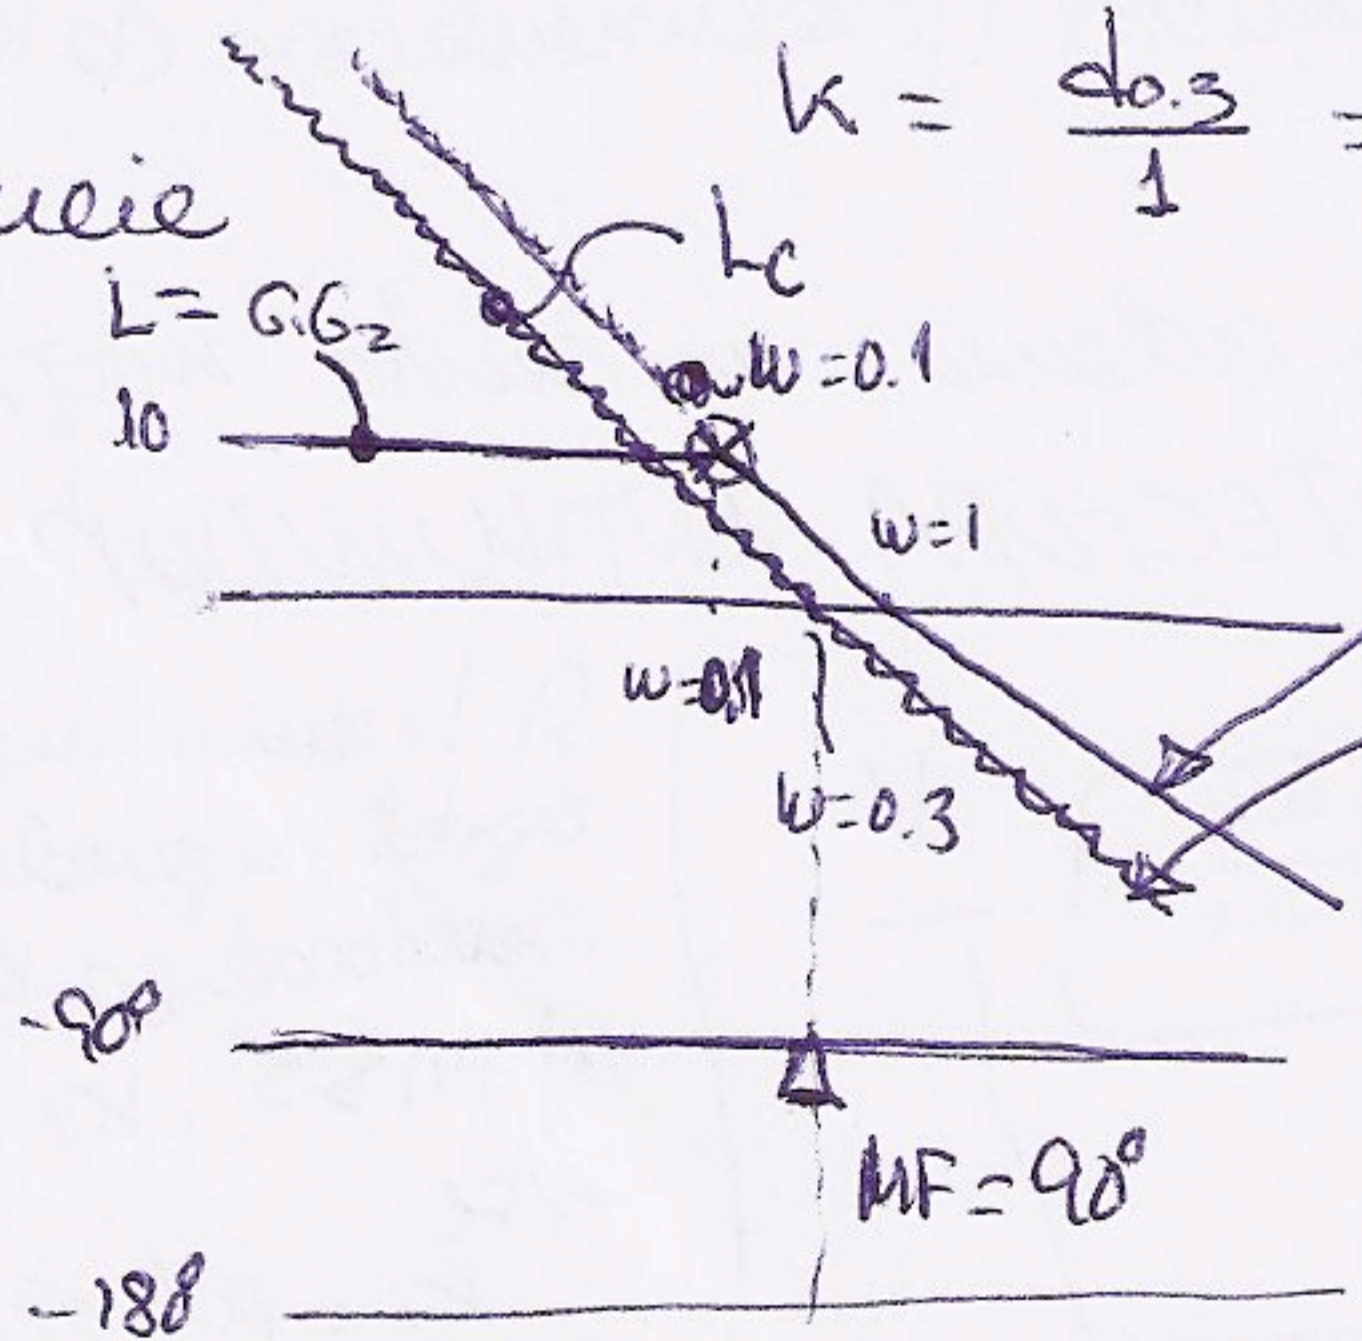 K = do.3 / 1 =
L = G1G2
Lc
w=0.1
10
w=1
w=0.3
-90°
MF=90°
-180°